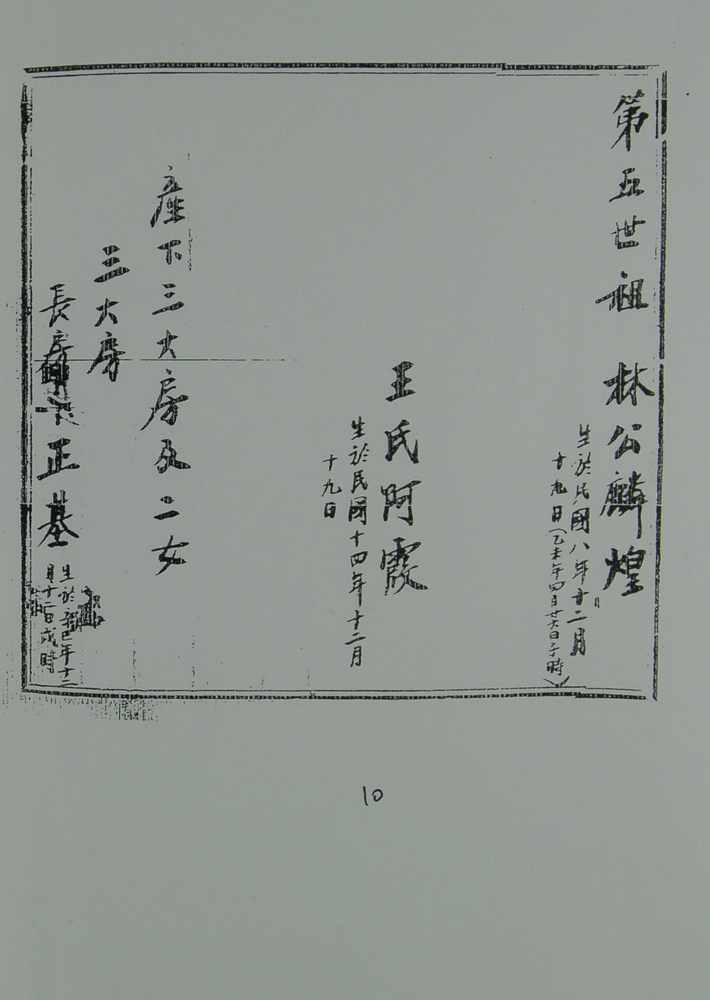 第五世祖 林公麟煌
生於民國八年十二月
十九日(乙未年四月廿六日子時)
王氏阿霞
生於民國十四年十二月
十九日
座下三大房及二女
三大房
長房 正基
生於辛巳年十二
月十二日戌時
10